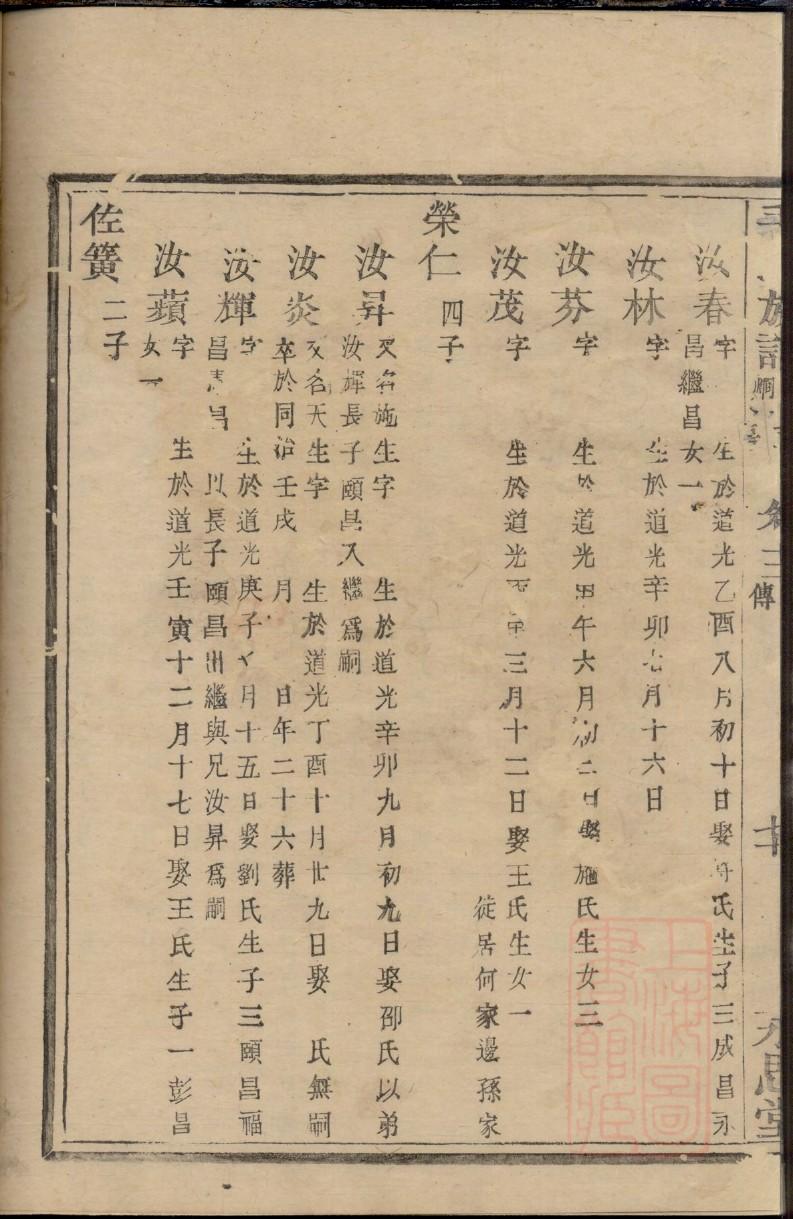 汝春字
生於道光乙酉八月初十日娶 氏生子三成昌永
昌繼昌女一
汝林字 生於道光辛卯 月十六日
汝芬字 生於道光甲午六月初二日娶施氏生女三
汝茂字 生於道光 三月十二日娶王氏生女一
徙居何家邊孫家
榮仁 四子
汝昇又名施生字 生於道光辛卯九月初九日娶邵氏以弟
汝輝長子頤昌入繼爲嗣
汝炎又名天生字 生於道光丁酉十月廿九日娶 氏無嗣
卒於同治壬戌 月 日年二十六葬
汝輝字 生於道光庚子 月十五日娶劉氏生子三頤昌福
昌 昌 以長子頤昌出繼與兄汝昇爲嗣
汝蘋字 生於道光壬寅十二月十七日娶王氏生子一彭昌
女一
佐簧 二子
族譜 卷 傳
十
思堂
上海圖書館藏